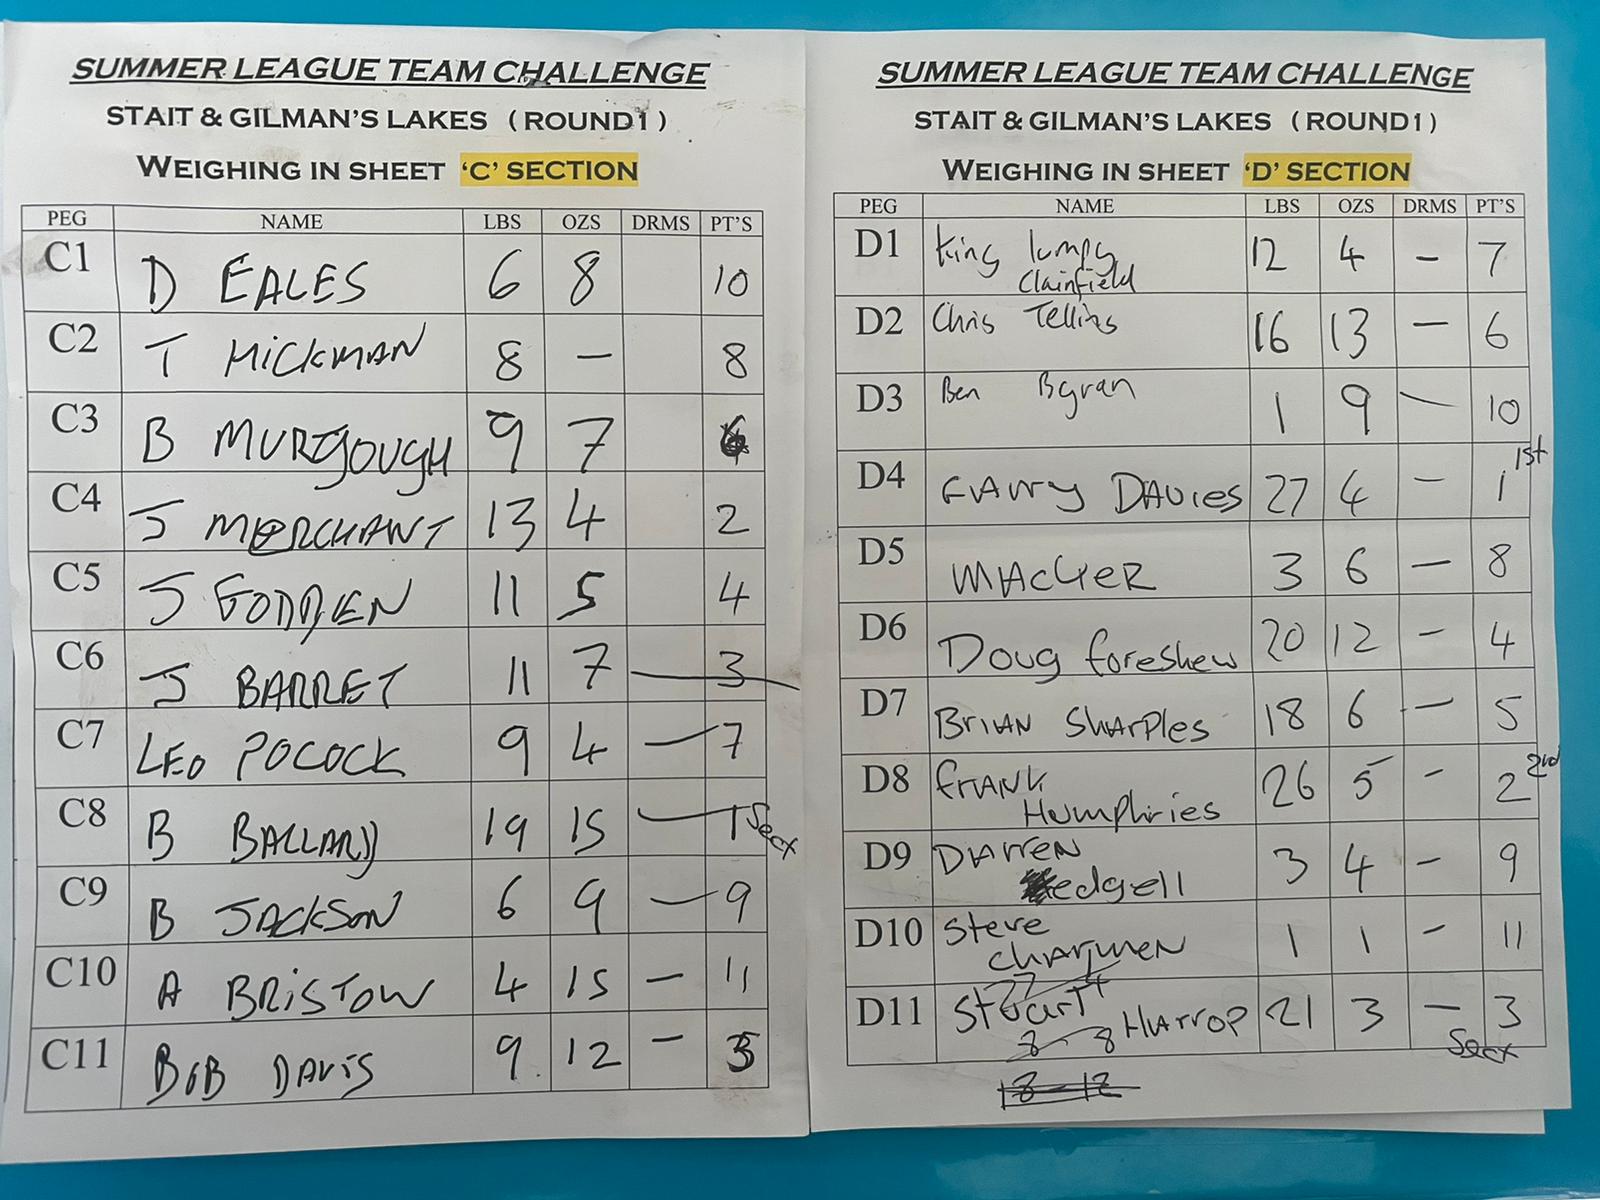 SUMMER LEAGUE TEAM CHALLENGE
STAIT & GILMAN'S LAKES (ROUND1)
WEIGHING IN SHEET 'C' SECTION
PEG NAME LBS OZS DRMS PT'S
C1 D EALES 6 8 10
C2 T HICKMAN 8 — 8
C3 B MURGOUGH 9 7 6
C4 J MERCHANT 13 4 2
C5 J GODDEN 11 5 4
C6 J BARRET 11 7 — 3
C7 LEO POCOCK 9 4 — 7
C8 B BALLARD 19 15 — 1 Sect
C9 B JACKSON 6 9 — 9
C10 A BRISTOW 4 15 — 11
C11 BOB DAVIS 9 12 — 5
SUMMER LEAGUE TEAM CHALLENGE
STAIT & GILMAN'S LAKES (ROUND1)
WEIGHING IN SHEET 'D' SECTION
PEG NAME LBS OZS DRMS PT'S
D1 King lumpy 12 4 — 7
Clainfield
D2 Chris Tellins 16 13 — 6
D3 Ben Bgran 1 9 — 10
D4 GArry DAvies 27 4 — 1 1st
D5 MAcker 3 6 — 8
D6 Doug foreshew 20 12 — 4
D7 BriAN ShArPles 18 6 — 5
D8 frANK 26 5 — 2 2nd
Humphries
D9 DArren 3 4 — 9
edgell
D10 Steve 1 1 — 11
chApmen
D11 Stuart HArrop 21 3 — 3
Sect
8 - 8
18 - 12